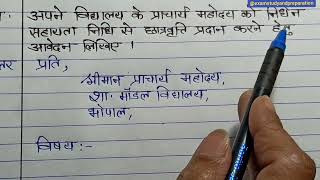 @examstudyandpreparation
अपने विद्यालय के प्राचार्य महोदय को निर्धन
सहायता निधि से छात्रवृत्ति प्रदान करने हेतु
आवेदन लिखिए ।
प्रति,
श्रीमान प्राचार्य महोदय,
शा. मॉडल विद्यालय,
भोपाल,
विषय :-